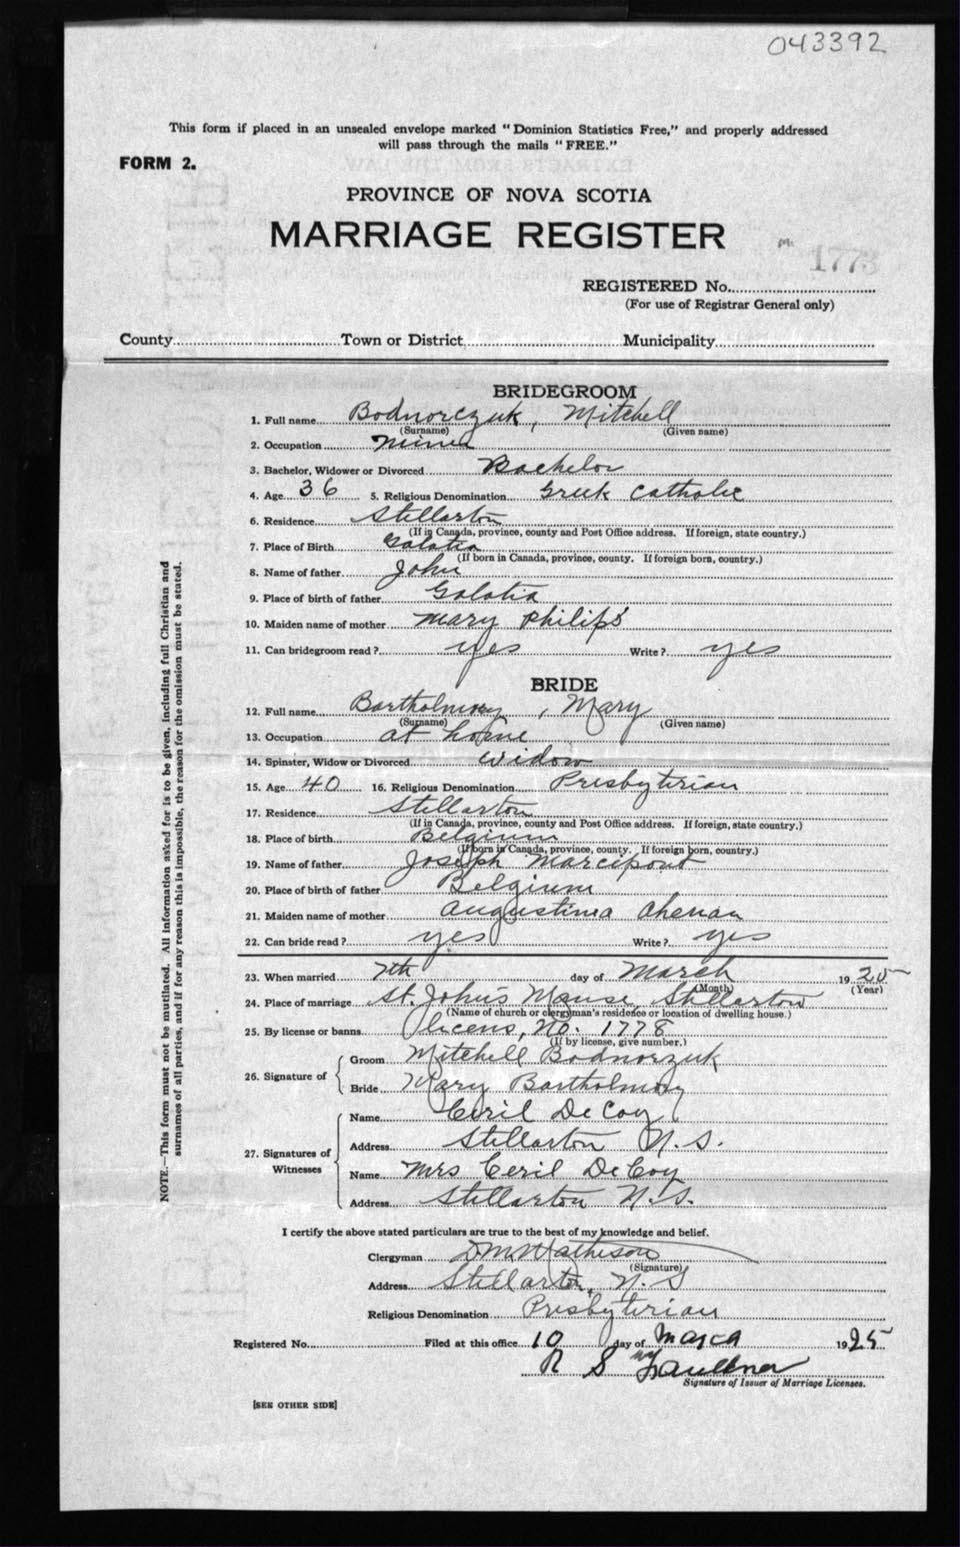 043392
This form if placed in an unsealed envelope marked "Dominion Statistics Free," and properly addressed
will pass through the mails "FREE."
FORM 2.
PROVINCE OF NOVA SCOTIA
MARRIAGE REGISTER
1773
REGISTERED No.
(For use of Registrar General only)
County Town or District Municipality
BRIDEGROOM
1. Full name Bodnorczuk, Mitchell
(Surname) (Given name)
2. Occupation Miner
3. Bachelor, Widower or Divorced Bachelor
4. Age 36 5. Religious Denomination Greek Catholic
6. Residence Stellarton
(If in Canada, province, county and Post Office address. If foreign, state country.)
7. Place of Birth Galatia
(If born in Canada, province, county. If foreign born, country.)
8. Name of father John
9. Place of birth of father Galatia
10. Maiden name of mother Mary Philips
11. Can bridegroom read? yes Write? yes
BRIDE
12. Full name Bartholmey, Mary
(Surname) (Given name)
13. Occupation at home
14. Spinster, Widow or Divorced widow
15. Age 40 16. Religious Denomination Presbyterian
17. Residence Stellarton
(If in Canada, province, county and Post Office address. If foreign, state country.)
18. Place of birth Belgium
(If born in Canada, province, county. If foreign born, country.)
19. Name of father Joseph Marcipont
20. Place of birth of father Belgium
21. Maiden name of mother Augustina
22. Can bride read? yes Write? yes
23. When married 7th day of March 1925
(Month) (Year)
24. Place of marriage St. John's Manse, Stellarton
(Name of church or clergyman's residence or location of dwelling house.)
25. By license or banns licens, No. 1778
(If by license, give number.)
26. Signature of Groom Mitchell Bodnorzuk
Bride Mary Bartholmey
27. Signatures of Witnesses Name Ceril De Coy
Address Stellarton N.S.
Name Mrs Ceril De Coy
Address Stellarton N.S.
I certify the above stated particulars are true to the best of my knowledge and belief.
Clergyman D M Matheson
(Signature)
Address Stellarton, N.S
Religious Denomination Presbyterian
Registered No. Filed at this office 10 day of March 1925
R S Faulkner
Signature of Issuer of Marriage Licenses.
[SEE OTHER SIDE]
NOTE.—This form must not be mutilated. All information asked for is to be given, including full Christian and
surnames of all parties, and if for any reason this is impossible, the reason for the omission must be stated.